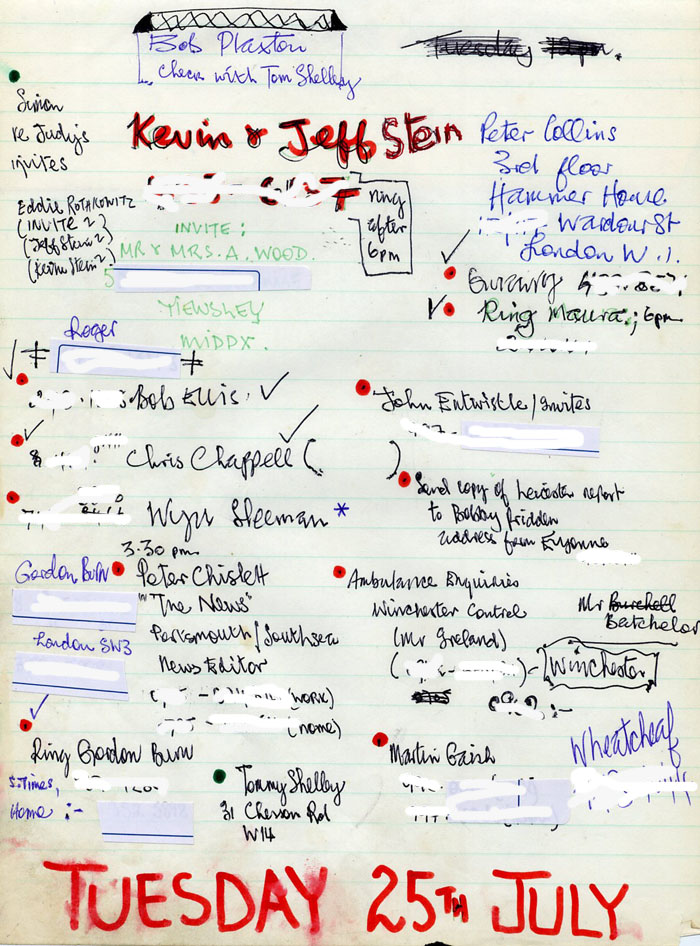 Bob Plaxton
Check with Tom Shelley
Tuesday 12pm.
Simon
re Judy's
invites
Kevin & Jeff Stein
Peter Collins
3rd floor
Hammer House
Wardour St
London W.1.
ring
after
6pm
Eddie Rothkowitz
(INVITE 2)
(Jeff Stein 2)
(Kevin Stein 2)
INVITE:
MR & MRS. A. WOOD.
5
YIEWSLEY
MIDDX.
Ring Maura; 6pm
Roger
Bob Ellis.
John Entwistle/invites
Chris Chappell ( )
Send copy of Leicester report
to Bobby Pridden
address from Evyonne
Wyn Sleeman *
3.30 pm
Peter Chislett
"The News"
Portsmouth/Southsea
News Editor
(work)
(home)
Gordon Burn
London SW3
Ambulance Enquiries
Winchester Control
(Mr Ireland)
Winchester
Mr Burchell
Batchelor
Ring Gordon Burn
S.Times,
Home :-
Tommy Shelley
31 Chesson Rd
W14
Martin Gaish
Wheatcheaf
TUESDAY 25TH JULY